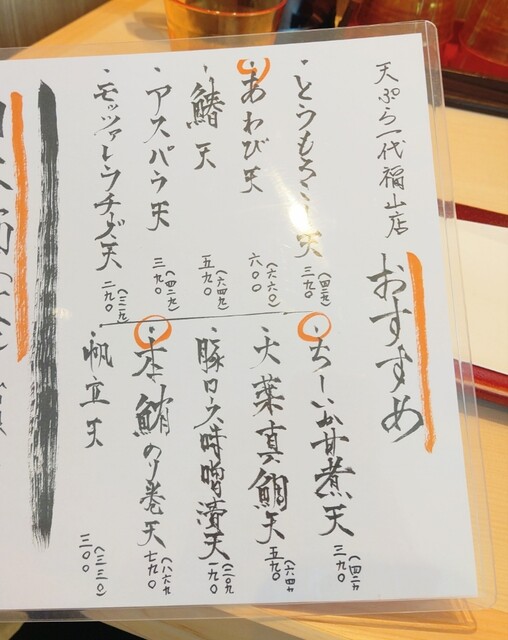 天ぷら一代福山店
おすすめ
・とうもろこし天 三九〇(四二九)
・あわび天 六〇〇(六六〇)
・鰆天 五九〇(六四九)
・アスパラ天 三九〇(四二九)
・モッツァレラチーズ天 二九〇(三一九)
・ちーいか甘煮天 三九〇(四二九
・大葉真鯛天 五九〇(六四九
・豚ロース味噌漬天 一九〇(二〇九
・本鮪のり巻天 七九〇(八六九
・帆立天 三〇〇(三三〇)